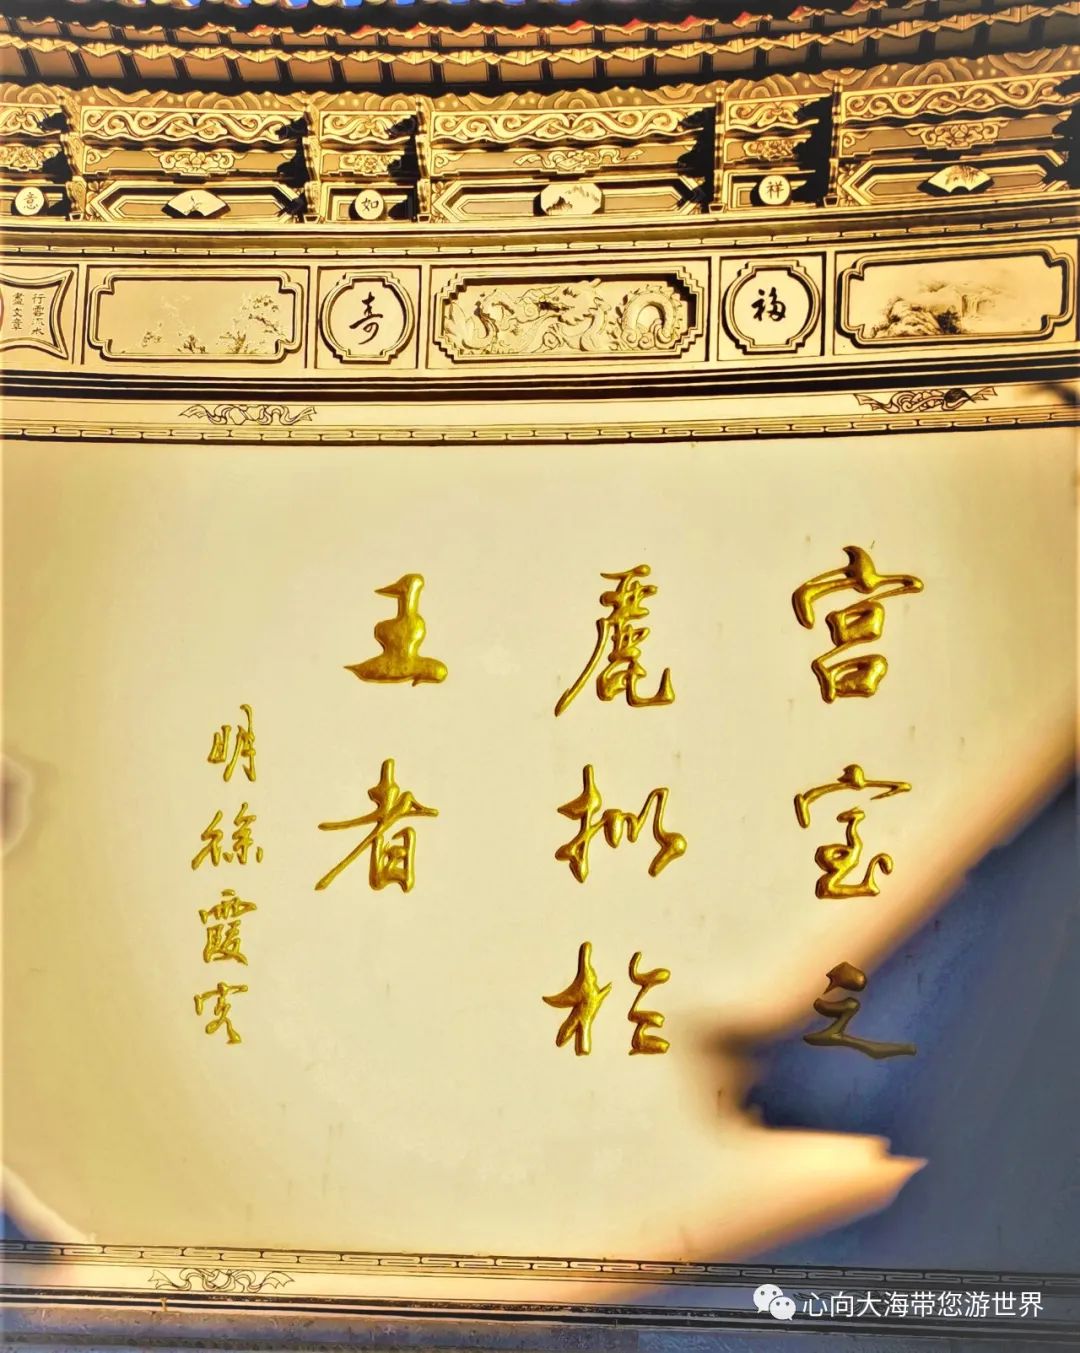 祥
如
意
福
寿
行雲流水
盡文章
宫室之
麗拟於
王者
明徐霞客
心向大海带您游世界